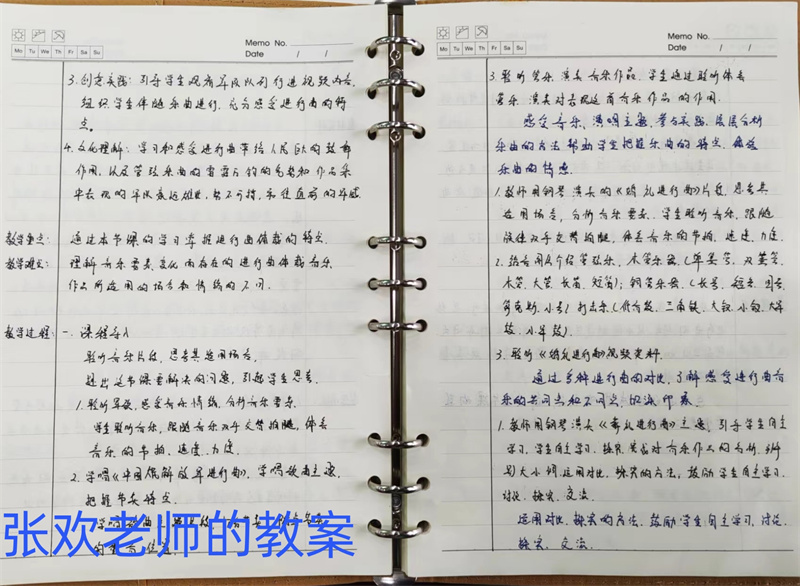 Memo No.
Mo Tu We Th Fr Sa Su
Date / /
3. 创造实践：引导学生观看军队队列行进视频内容，
组织学生伴随乐曲行进，充分感受进行曲的特
点。
4. 文化理解：学习和感受进行曲带给人民队伍的鼓舞
作用，以及管弦乐曲的雷霆万钧的气势和作品
中表现的军队豪迈雄壮，势不可挡，和往直前的
教学重点：通过本节课的学习掌握进行曲体裁的特点
教学难点：理解音乐要素变化内在的进行曲体裁音乐
作品所运用的场合和情绪的不同。
教学过程：一. 课程导入
聆听音乐片段，思考其运用场合。
提出这节课要解决的问题，引起学生思考。
1. 聆听军歌，感受音乐情绪，分析音乐要素
学生聆听音乐，跟随音乐双手交替拍腿，体会
音乐的节拍、速度、力度。
2. 学唱《中国人民解放军进行曲》，学唱歌曲主题，
把握节奏特点
张欢老师的教案
Memo No.
Mo Tu We Th Fr Sa Su
Date / /
3. 聆听管乐演奏音乐作品，学生通过聆听体会
管乐演奏对表现这首音乐作品的作用。
感受音乐、演唱主题、参与实践、层层分析
乐曲的方法帮助学生把握乐曲的特点，体验
乐曲的情感
1. 教师用钢琴演奏的《婚礼进行曲》片段，思考其
运用场合，分析音乐要素，学生聆听音乐，跟随
旋律双手交替拍腿，体会音乐的节拍、速度、力度
2. 结合图片介绍管弦乐，木管乐器，（单簧管、双簧管、
木管、大管、长笛、短笛）；铜管乐器（长号、短号、圆号
小号）打击乐（定音鼓、三角铁、大钹、小钹、大军
鼓、小军鼓）。
3. 聆听《婚礼进行曲》视频资料
通过多种进行曲的对比，了解感受进行曲音
乐的共同点和不同点，加深印象
1. 教师用钢琴演奏《葬礼进行曲》主题，引导学生自主
学习，学生自主学习，探究其对音乐作品的分析，
大小调，运用对比、探究的方法，鼓励学生自主学习、
讨论、探究、交流
运用对比、探究的方法，鼓励学生自主学习、讨论、
探究、交流。